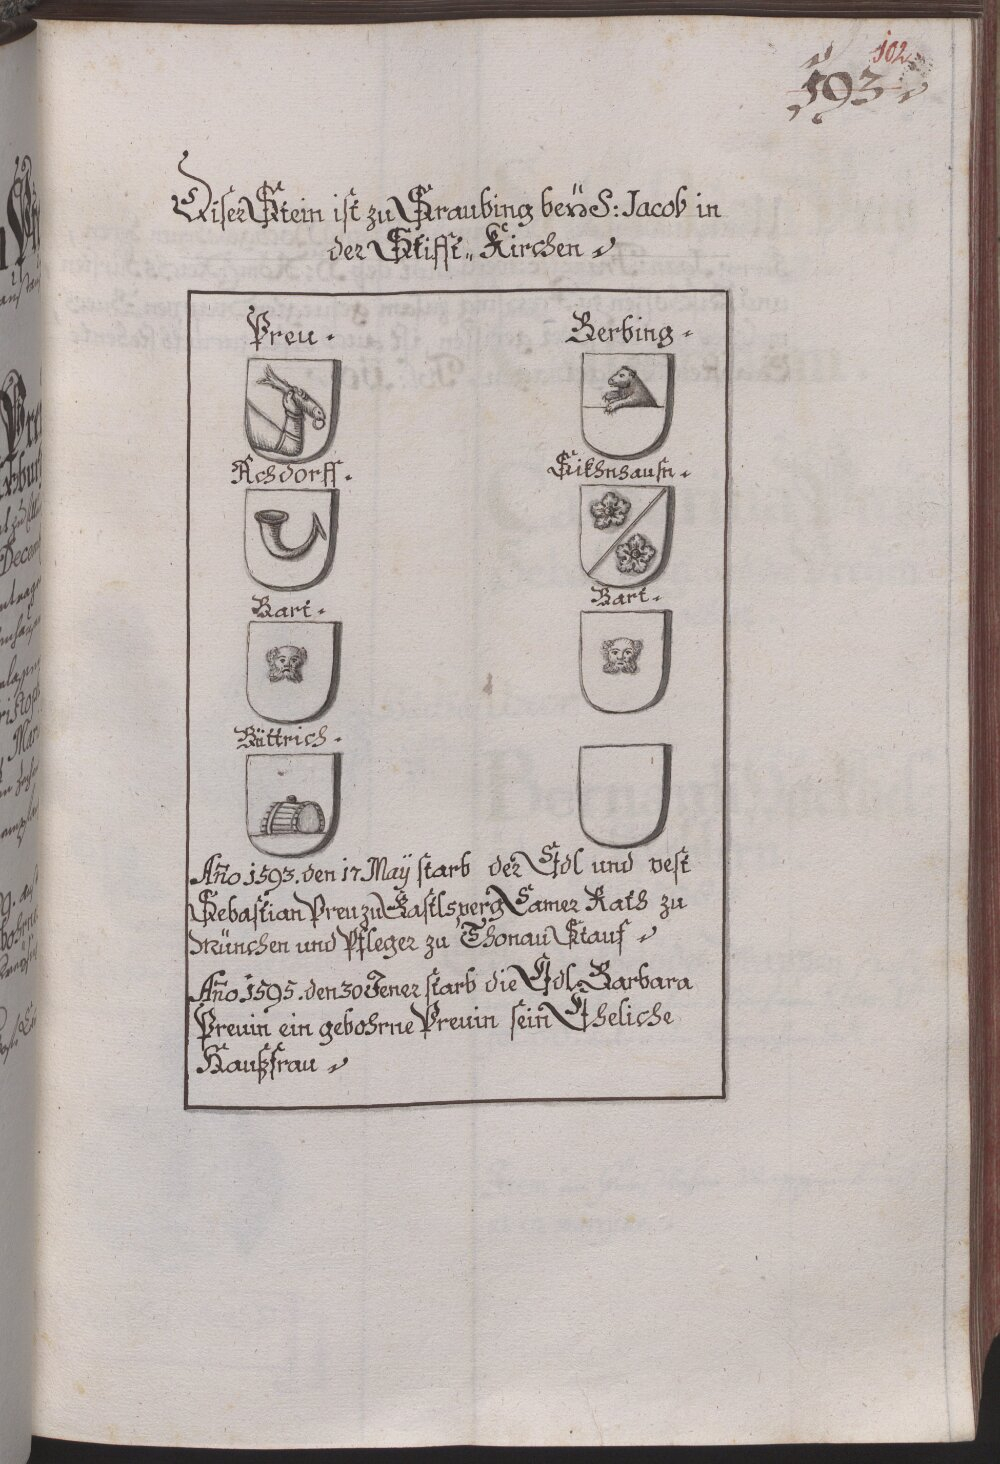 102
193
Diser Stein ist zu Straubing beÿ S: Jacob in
der Stifft„ Kirchen
Preu.
Berbing.
Achdorff.
Sikhnhausn.
Bart.
Bart.
Büttrich.
Año 1593. den 17 Maÿ starb der Edl und vest
Sebastian Preu zu Castlsperg Camer Rath zu
München und Pfleger zu Thonau Stauf
Año 1595. den 30 Jener starb die Edl Barbara
Preuin ein gebohrne Preuin sein Eheliche
Haußfrau